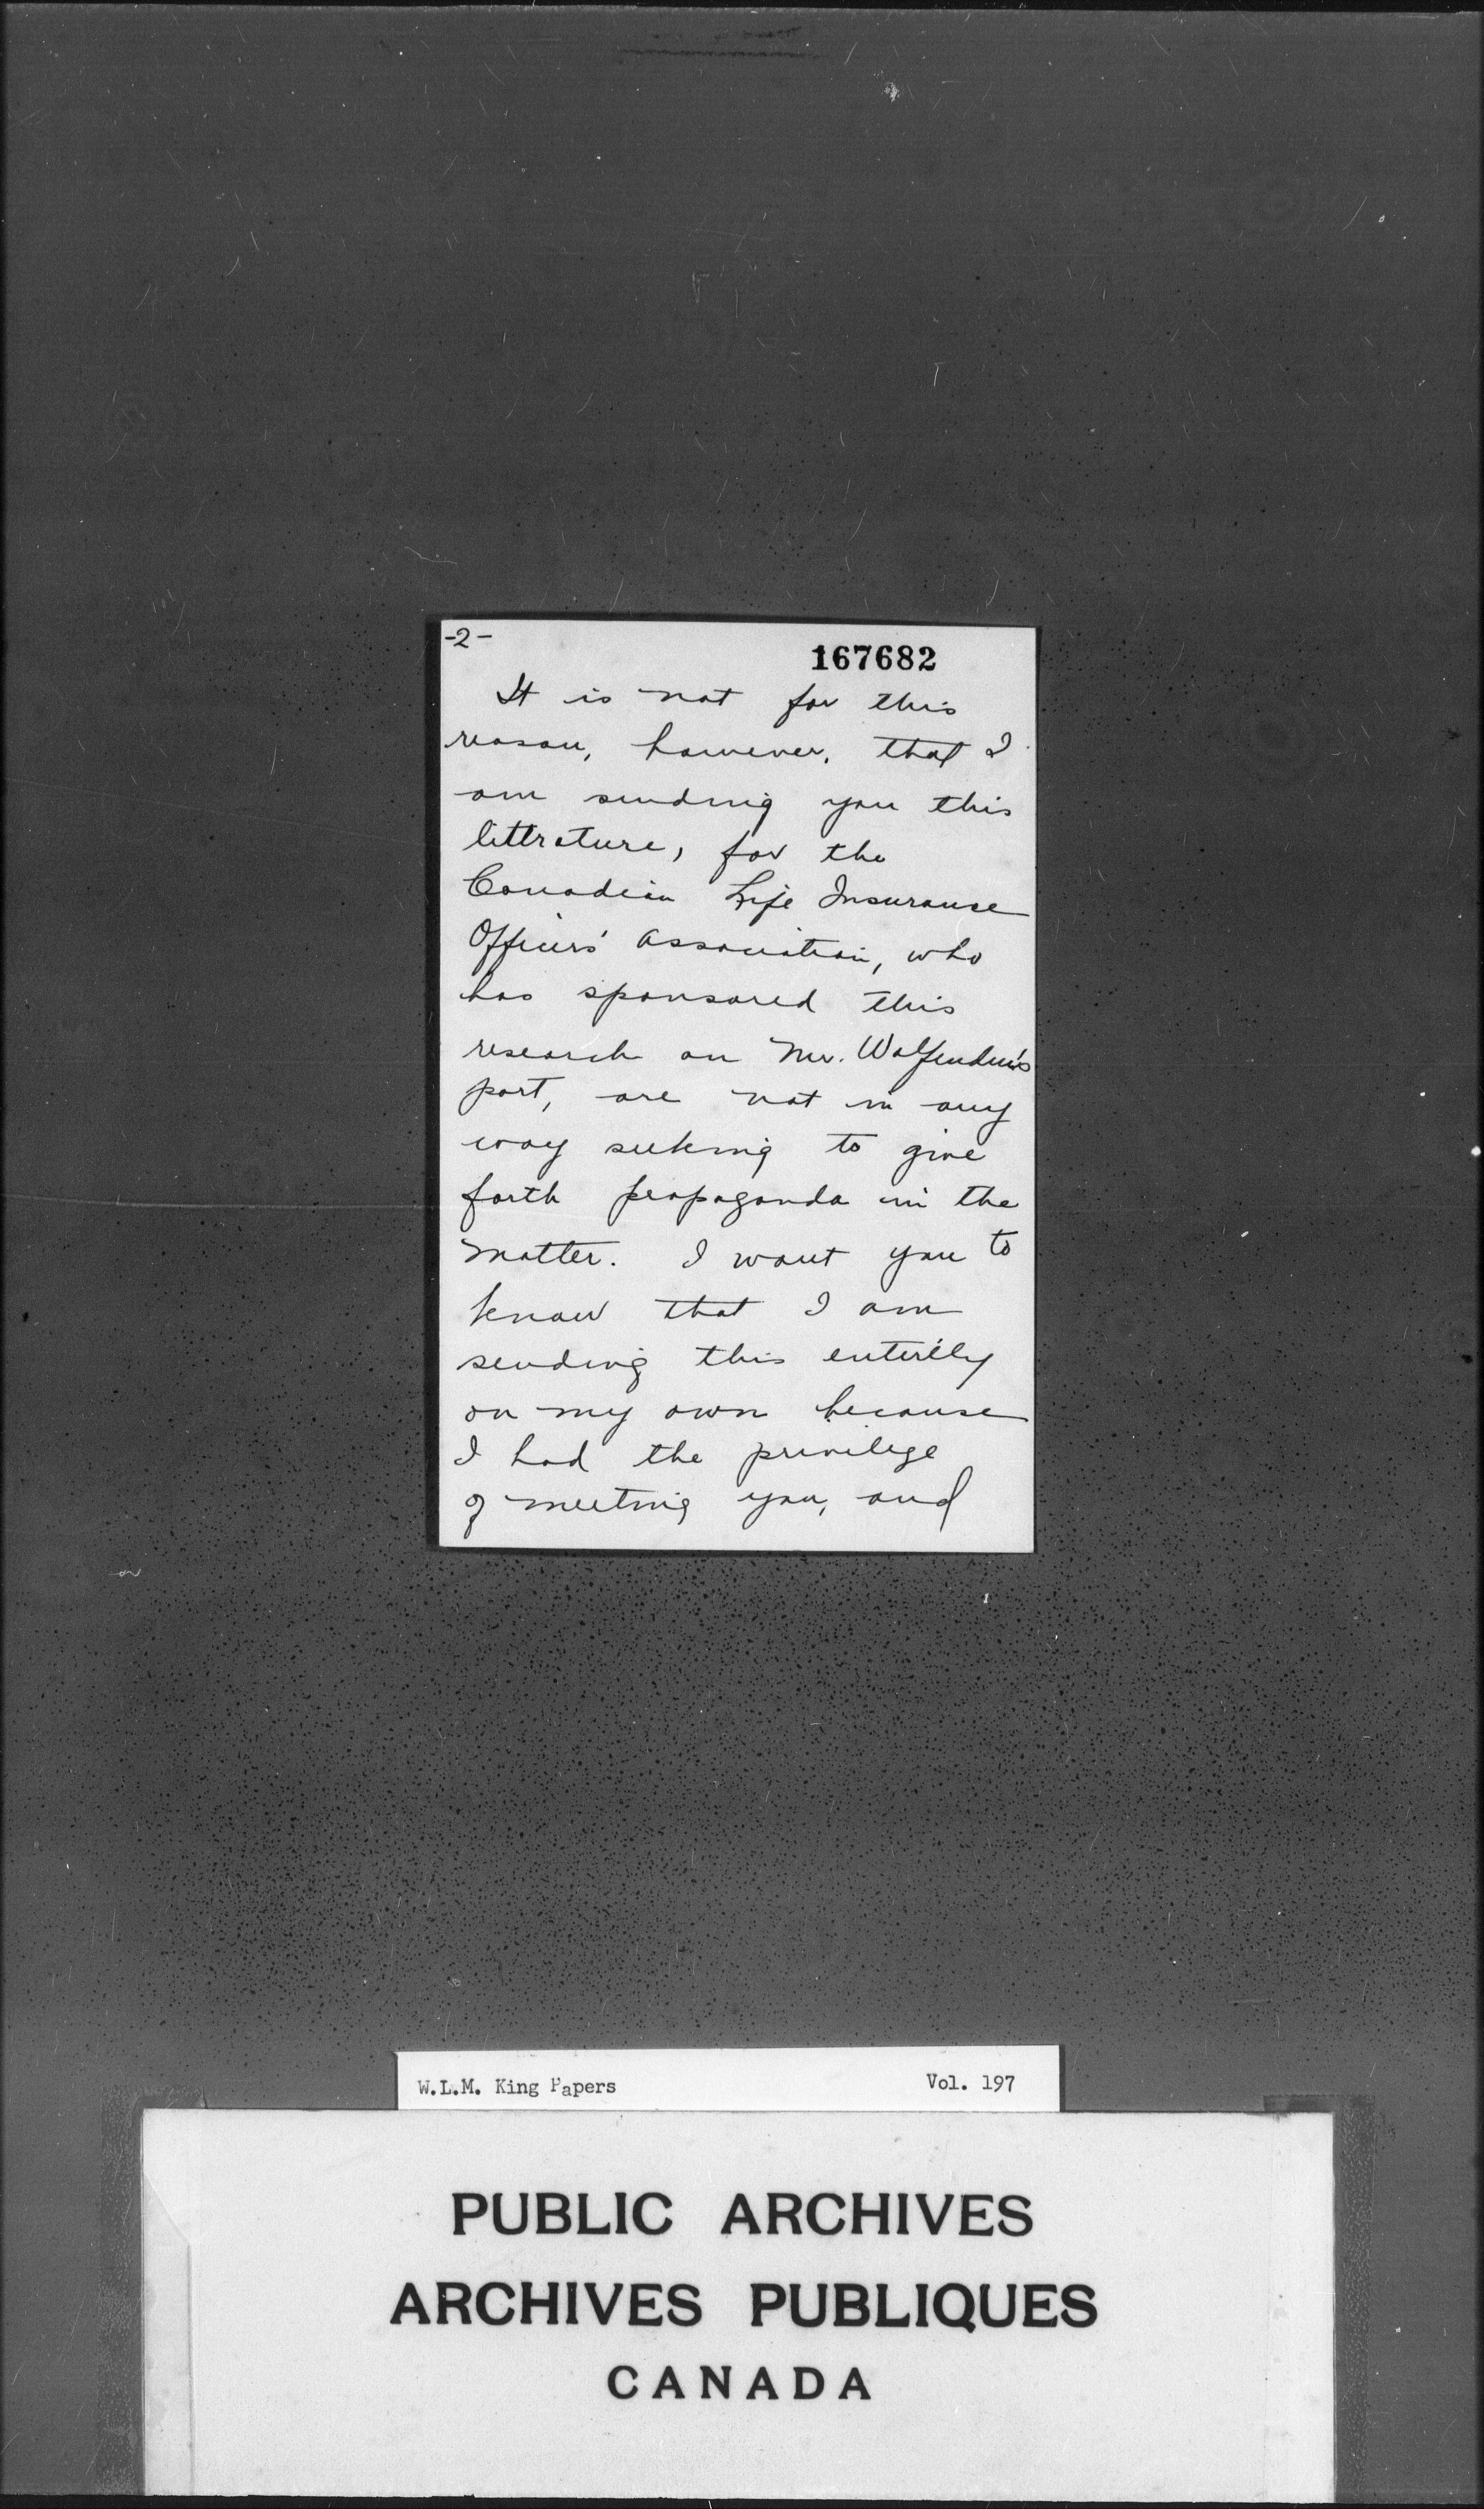 -2-
167682
It is not for this
reason, however, that I
am sending you this
littrature, for the
Canadian Life Insuranse
Officers' Association, who
has sponsored this
research on Mr. Wolfenden's
part, are not in any
way seeking to give
forth propaganda in the
matter. I want you to
know that I am
sending this entirely
on my own because
I had the privilege
of meeting you, and
W.L.M. King Papers Vol. 197
PUBLIC ARCHIVES
ARCHIVES PUBLIQUES
CANADA